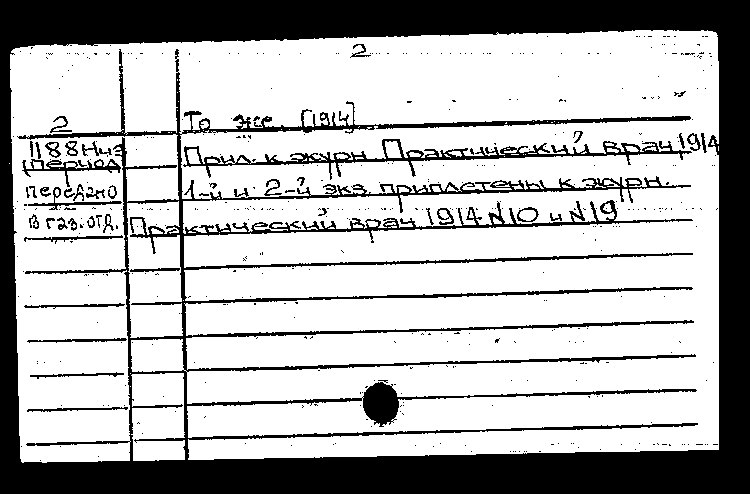 2
2 То же. [1914]
1188Низ Прил. к журн. Практический врач, 1914
(период
передано 1-й и 2-й экз. приплетены к журн.
в газ. отд. Практический врач 1914 №10 и №19